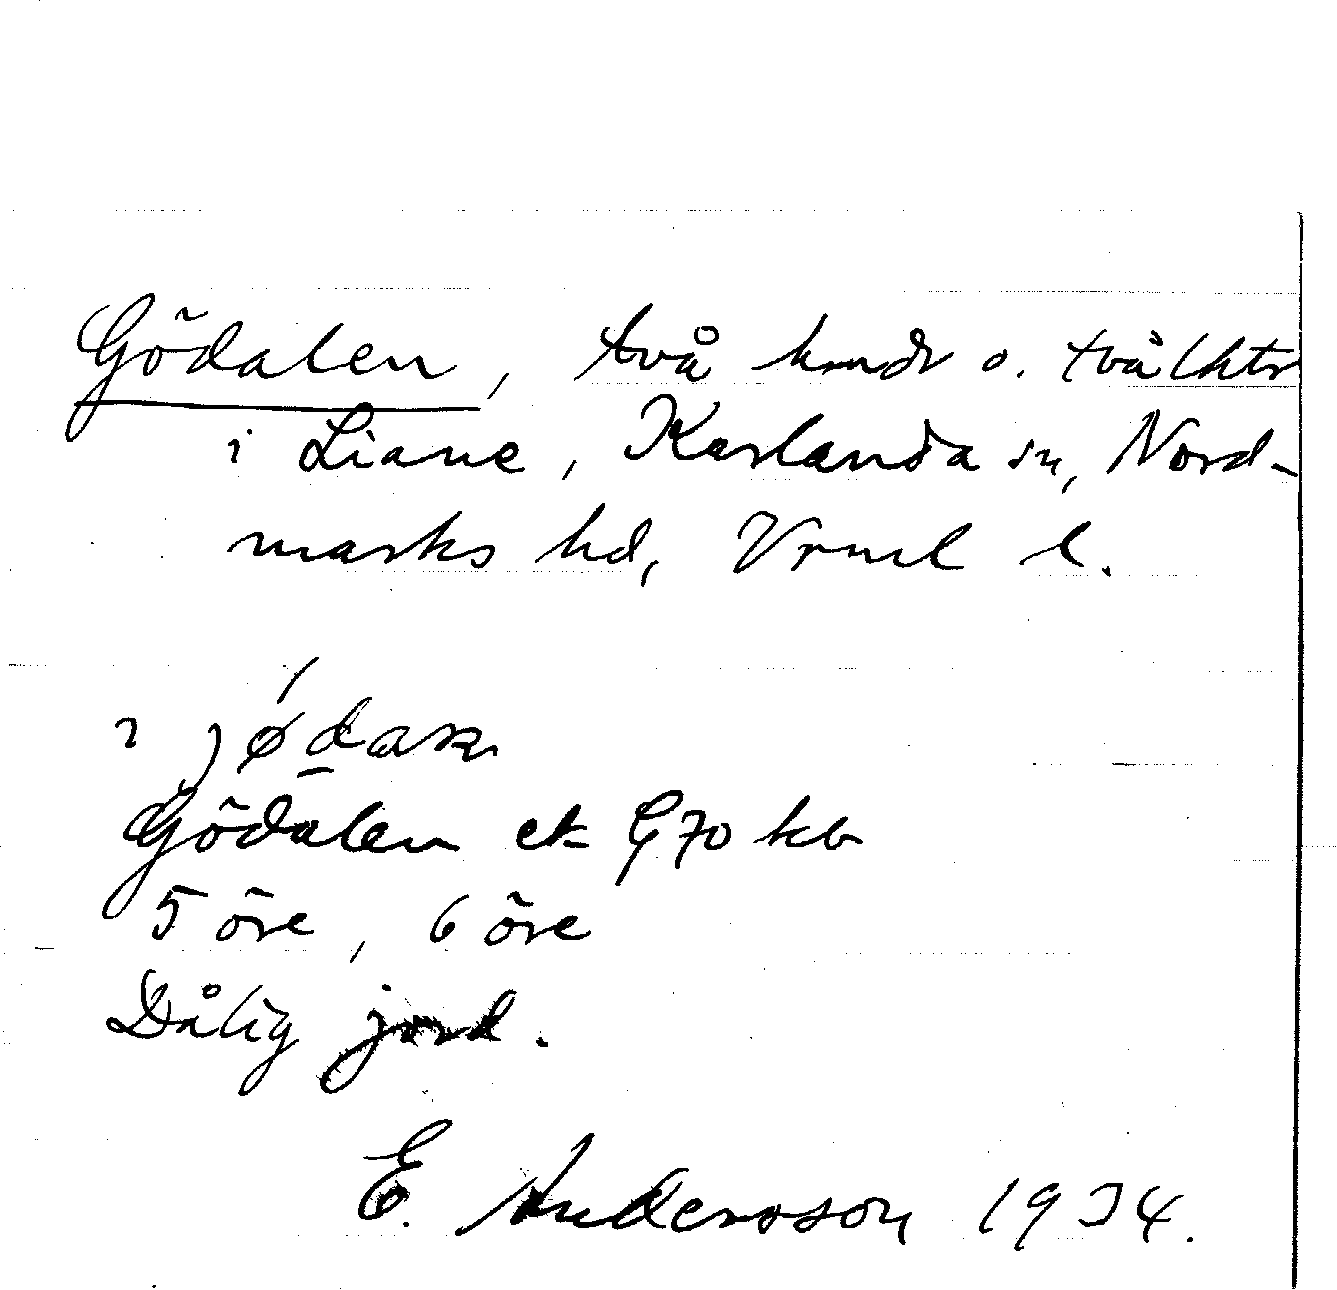 Gödalen, två hmdr o. två lhtr
i Liane, Karlanda sn, Nord-
marks hd, Vrml l.
i jǿdaɴ
Gödalen ek G70 kb
5 öre, 6 öre
Dålig jord.
E. Andersson 1934.